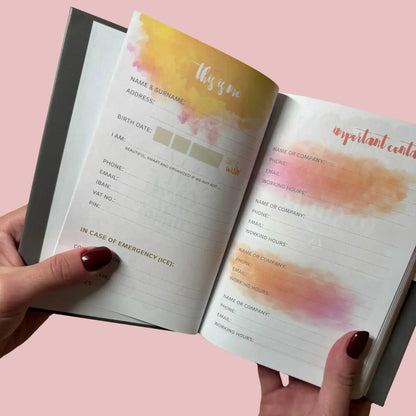 this is me
NAME & SURNAME:
ADDRESS:
BIRTH DATE:
I AM:
BEAUTIFUL, SMART AND ORGANIZED IF WE MAY ADD...
PHONE:
EMAIL:
IBAN:
VAT NO.:
PIN:
IN CASE OF EMERGENCY (ICE):
important conta
NAME OR COMPANY:
PHONE:
EMAIL:
WORKING HOURS:
NAME OR COMPANY:
PHONE:
EMAIL:
WORKING HOURS:
NAME OR COMPANY:
PHONE:
EMAIL:
WORKING HOURS:
NAME OR COMPANY:
PHONE:
EMAIL:
WORKING HOURS: